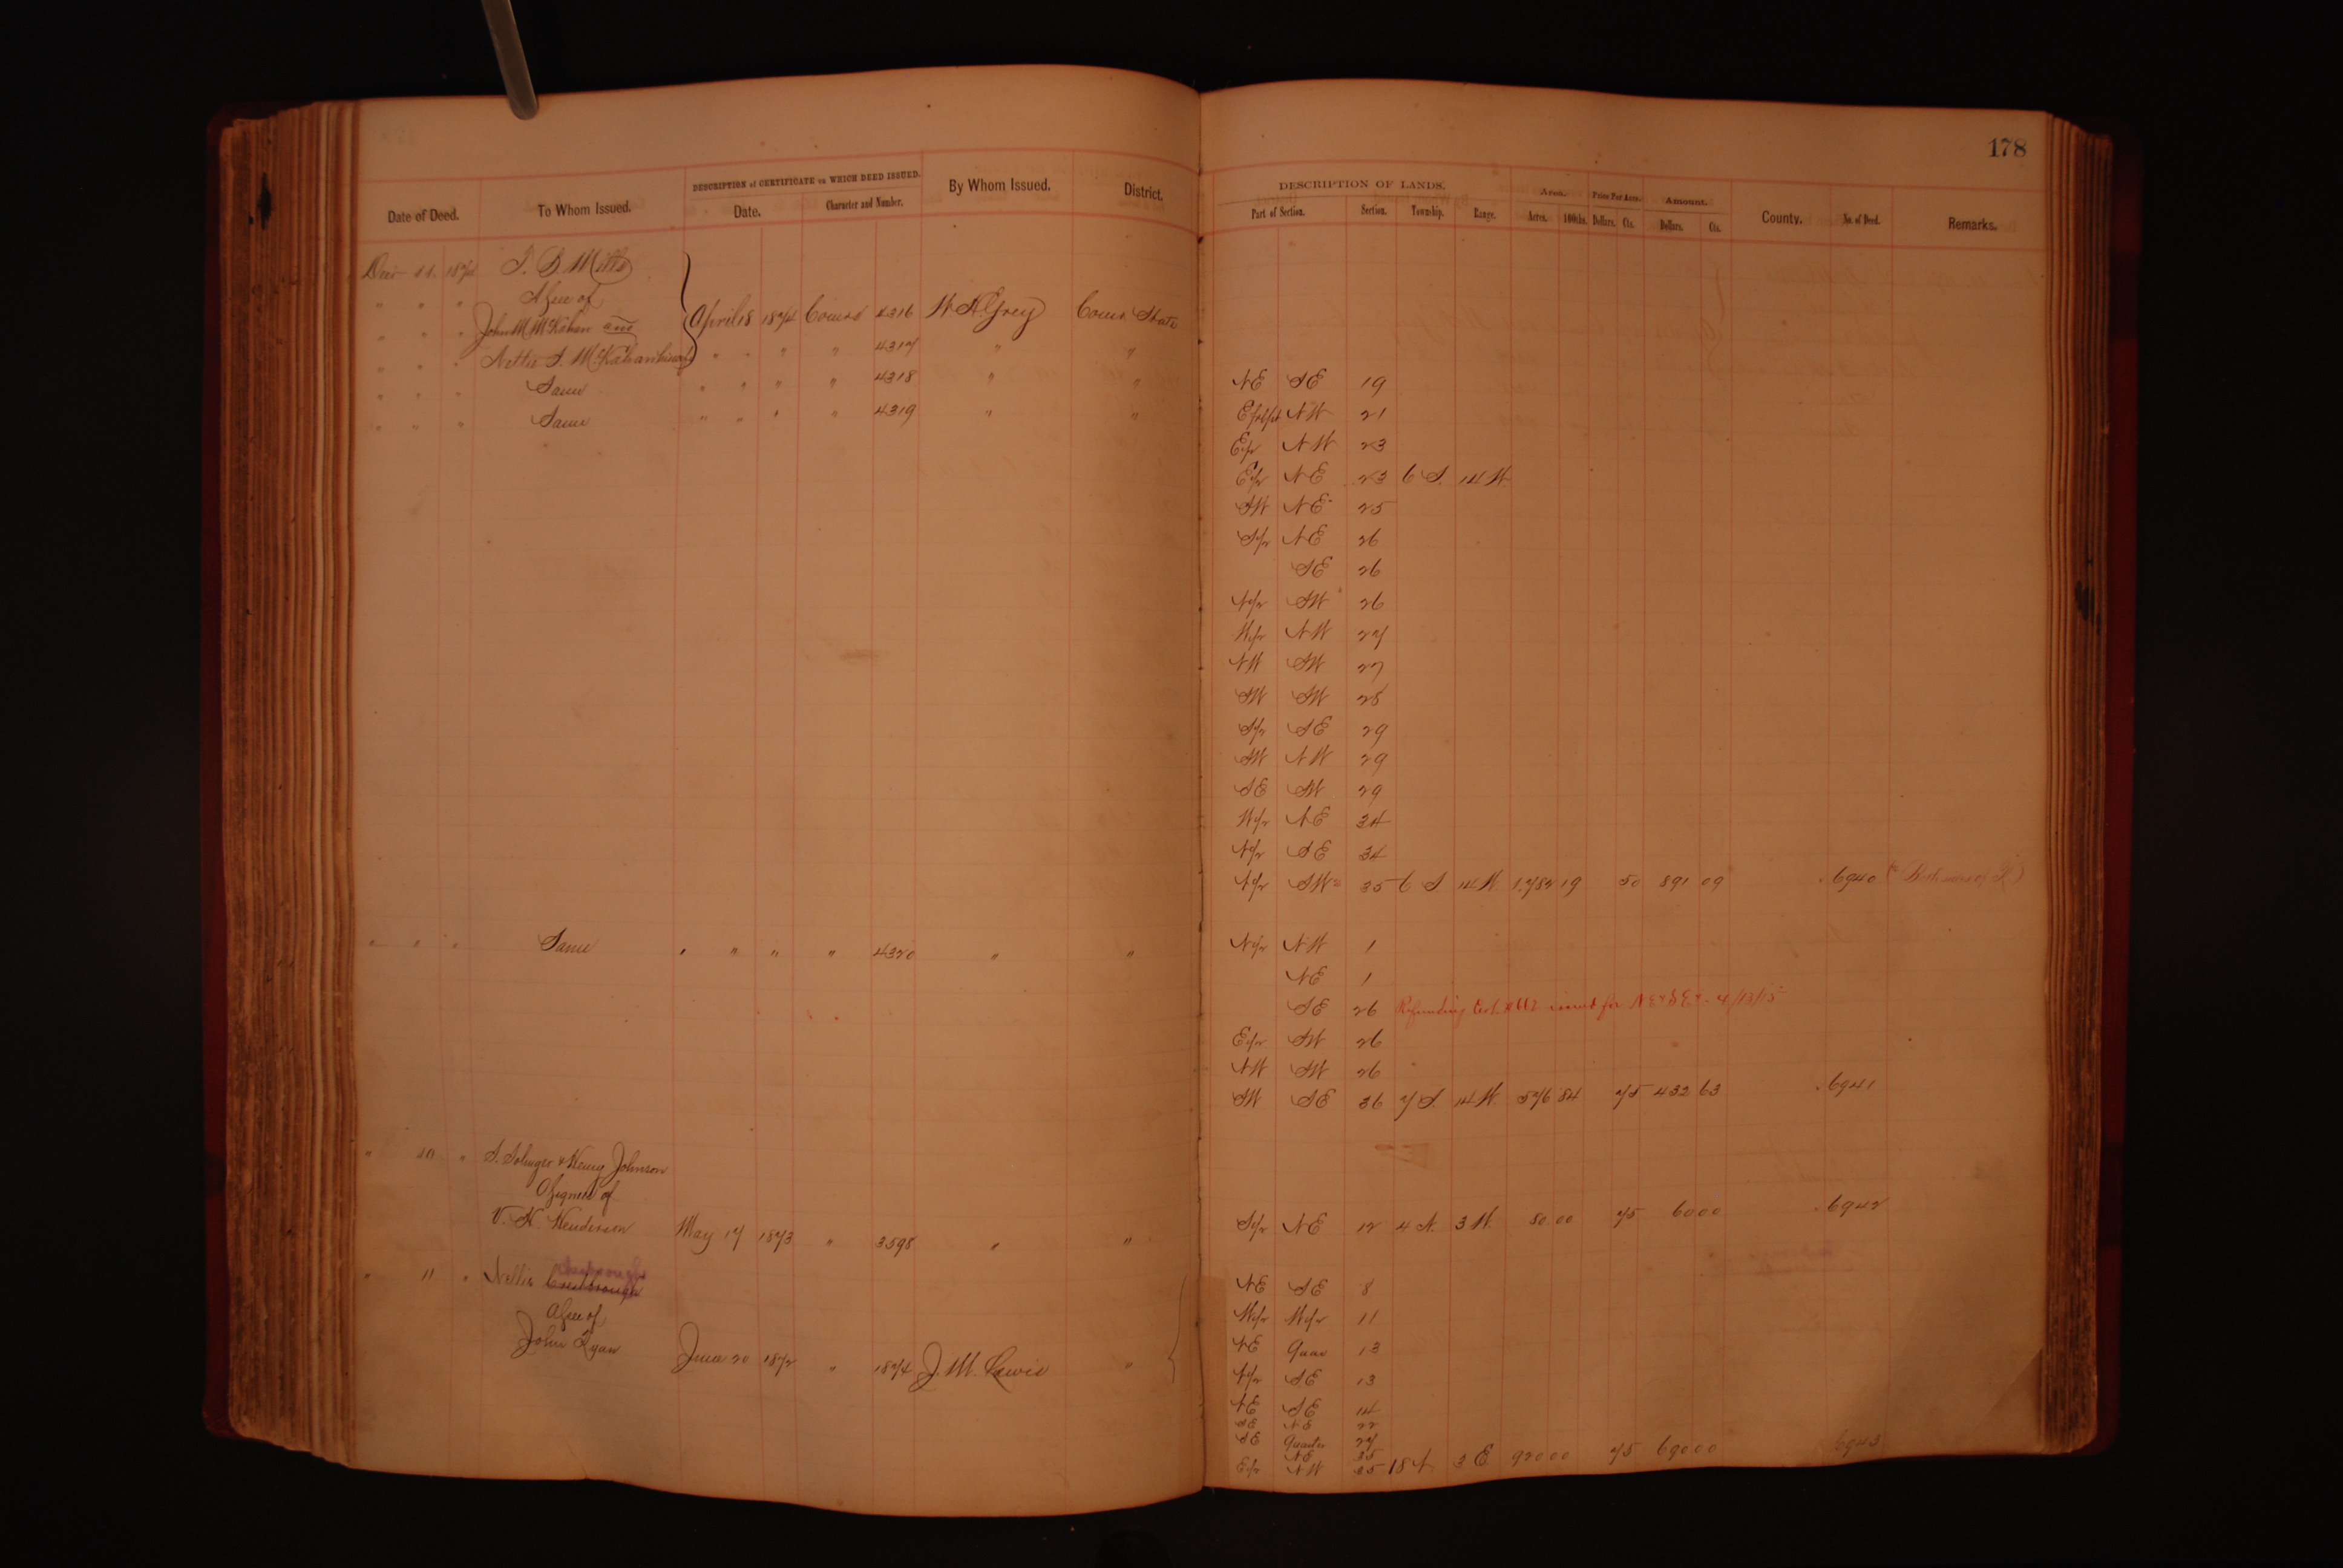 178
DESCRIPTION of CERTIFICATE on WHICH DEED ISSUED.
Date of Deed. To Whom Issued. Date. Character and Number. By Whom Issued. District.
DESCRIPTION OF LANDS. Area. Price Per Acre. Amount.
Part of Section. Section. Township. Range. Acres. 100ths. Dollars. Cts. Dollars. Cts. County. No. of Deed. Remarks.
11 T. B. Mills
" " " of
" " " John M
April 18 1874 4316 W H Grey State
" " " Nettie S. " " " " 4317 " "
" " " Same " " " " 4318 " "
" " " Same " " " " 4319 " "
NE SE 19
NW 21
E/2 NW 23
E/2 NE 23 6 S. 14 W.
SW NE 25
S/2 NE 26
SE 26
N/2 SW 26
W/2 NW 27
NW SW 27
SW SW 28
S/2 SE 29
SW NW 29
SE SW 29
W/2 NE 34
N/2 SE 34
N/2 SW 35 6 S 14 W. 1.782 19 50 891 09 6940
" " " Same " " " " 4320 " "
N/2 NW 1
NE 1
SE 26 Refunding issued for 4/13/15
E/2 SW 26
NW SW 26
SW SE 36 7 S. 14 W. 576 84 75 432 63 6941
" " & Henry Johnson
of
V. K. Henderson May 17 1873 " 3598 " "
S/2 NE 12 4 N. 3 W. 80 00 75 60 00 6942
" 11 " Nellie
of
John Ryan June 20 1872 " 1874 J. M. Lewis "
NE SE 8
W/2 W/2 11
NE Quar 13
N/2 SE 13
NE SE 14
SE NE 22
SE Quarter 27
NE 35
E/2 NW 35 18 N 3 E 920 00 75 690 00 6943